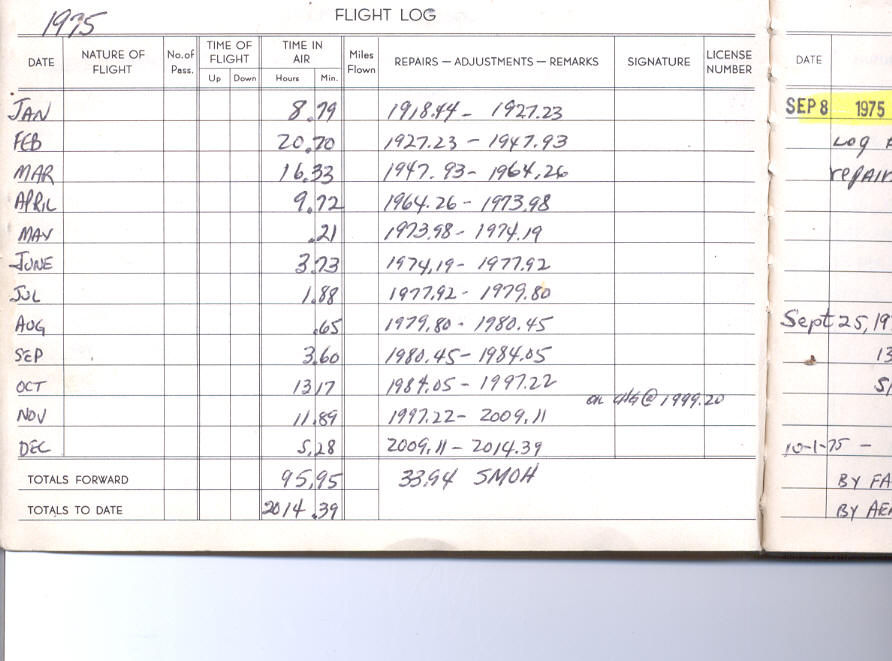 1975 FLIGHT LOG
DATE NATURE OF FLIGHT No. of Pass. TIME OF FLIGHT Up Down TIME IN AIR Hours Min. Miles Flown REPAIRS — ADJUSTMENTS — REMARKS SIGNATURE LICENSE NUMBER
JAN 8.79 1918.44 - 1927.23
FEB 20.70 1927.23 - 1947.93
MAR 16.33 1947.93 - 1964.26
APRIL 9.72 1964.26 - 1973.98
MAY .21 1973.98 - 1974.19
JUNE 3.73 1974.19 - 1977.92
JUL 1.88 1977.92 - 1979.80
AUG .65 1979.80 - 1980.45
SEP 3.60 1980.45 - 1984.05
OCT 13.17 1984.05 - 1997.22
@ 1999.20
NOV 11.89 1997.22 - 2009.11
DEC 5.28 2009.11 - 2014.39
TOTALS FORWARD 95.95 33.94 SMOH
TOTALS TO DATE 2014.39
DATE
SEP 8 1975
LOG
REPAIR
Sept 25, 19
13
10-1-75 -
BY FA
BY AE